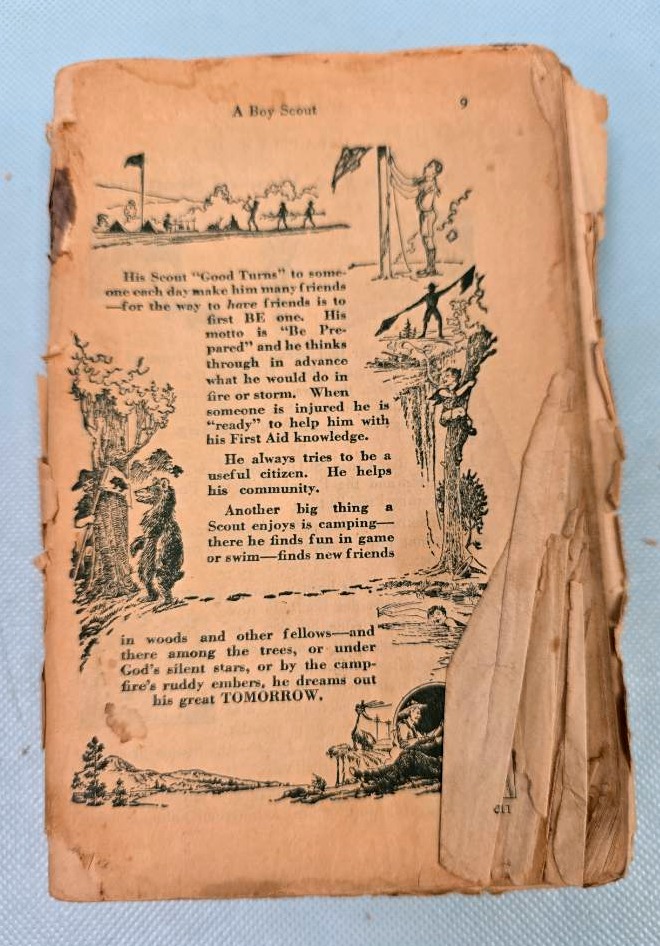 A Boy Scout 9
His Scout "Good Turns" to some-
one each day make him many friends
—for the way to have friends is to
first BE one. His
motto is "Be Pre-
pared" and he thinks
through in advance
what he would do in
fire or storm. When
someone is injured he is
"ready" to help him with
his First Aid knowledge.
He always tries to be a
useful citizen. He helps
his community.
Another big thing a
Scout enjoys is camping—
there he finds fun in game
or swim—finds new friends
in woods and other fellows—and
there among the trees, or under
God's silent stars, or by the camp-
fire's ruddy embers, he dreams out
his great TOMORROW.